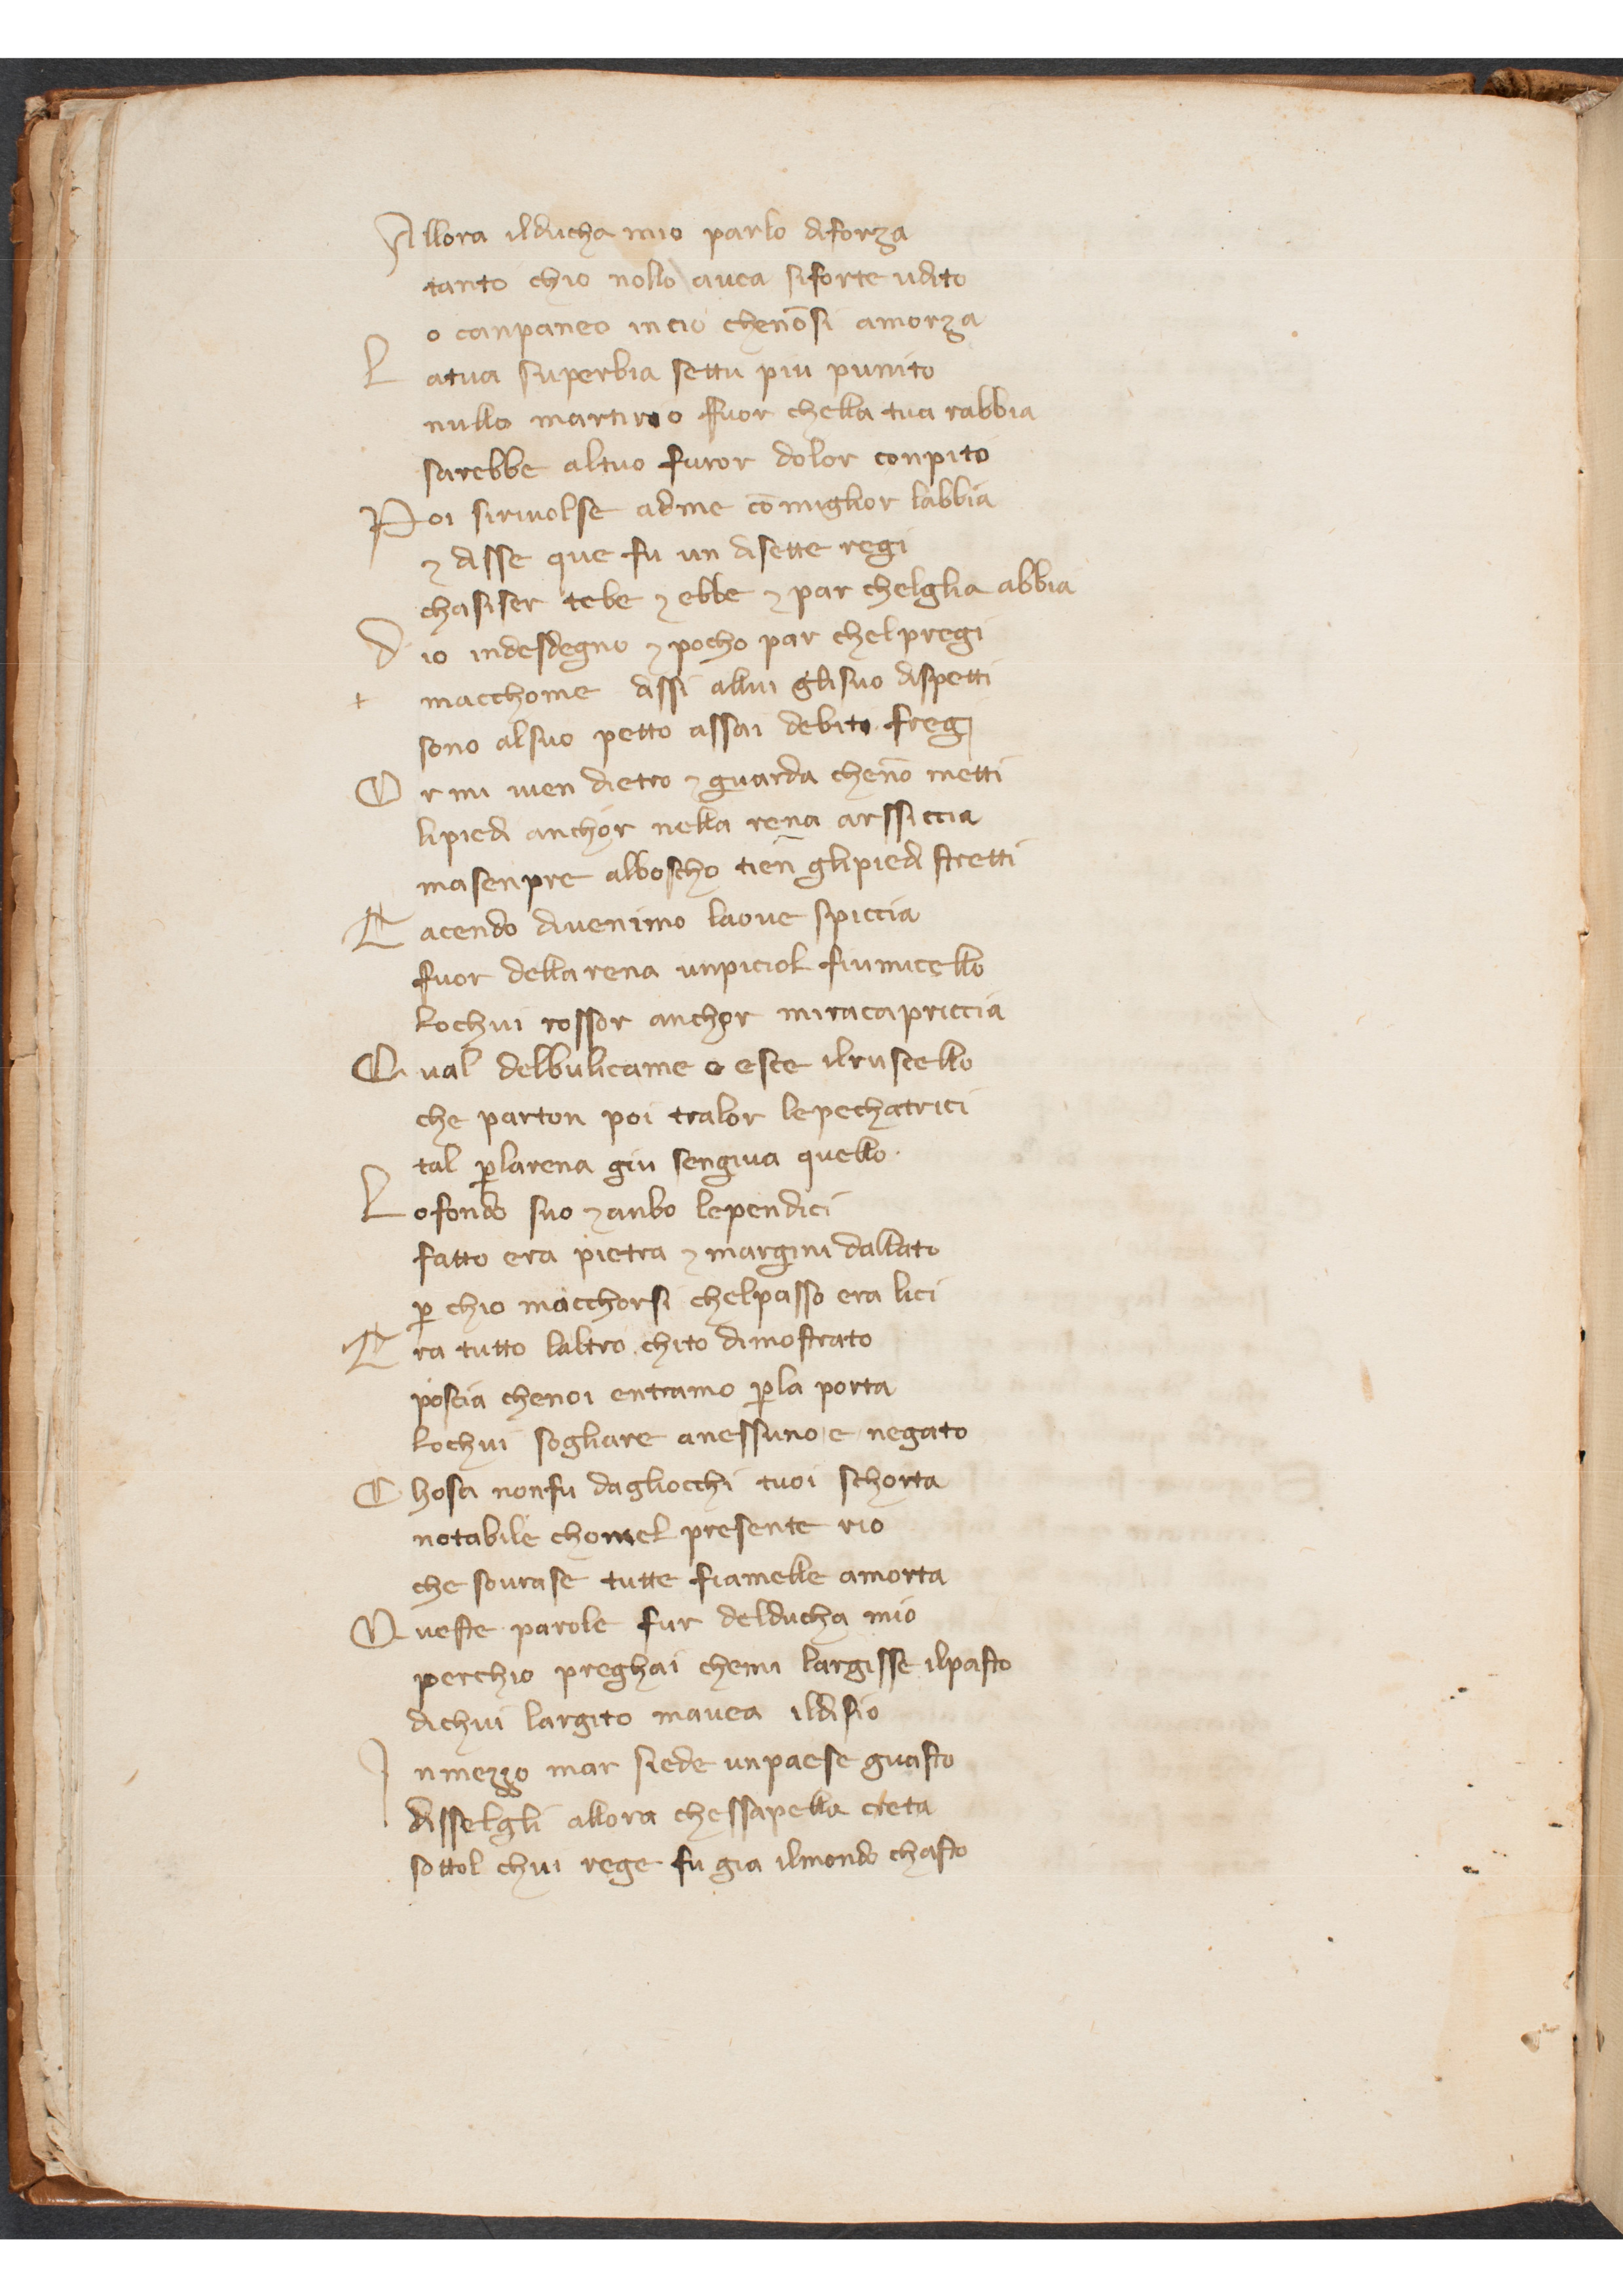 Allora ilducha mio parlo diforza
tanto chio nollo avea siforte udito
o canpaneo incio chenōsi amorza
L atua superbia settu piu punito
nullo martiro o fuor chella tua rabbia
sarebbe altuo furor dolor conpito
Poi sirivolse adme cō miglior labbia
⁊ disse que fu un disette regi
chasiser tebe ⁊ ebbe ⁊ par chelglia abbia
D io indesdegno ⁊ pocho par chelpregi
+ macchome dissi allui glisuo dispetti
sono alsuo petto assai debito fregi
O r mi vien dietro ⁊ guarda chenō metti
lipiedi anchor nella rena arssiccia
masenpre alboscho tien̄ glipiedi stretti
T acendo divenimo laove spiccia
fuor dellarena unpiciol fiumicello
lochui rossor anchor miracapriccia
Q ual delbulicame o esce ilruscello
che parton poi tralor lepechatrici
tal ꝑlarena giu sengiva quello.
L ofondo suo ⁊ anbo lependici
fatto era pietra ⁊ margini dallato
ꝑ chio macchorsi chelpasso era lici
T ra tutto laltro chito dimostrato
poscia chenoi entramo ꝑla porta
lochui sogliare anessuno e negato
C hosa nonfu dagliocchi tuoi schorta
notabile chomel presente rio
che sovrase tutte fiamelle amorta
Q ueste parole fur delducha mio
perchio preghai chemi largisse ilpasto
dichui largito mavea ildisio
I nmezzo mar siede unpaese guasto
disselgli allora chessapella creta
sottol chui rege fu gia ilmondo chasto